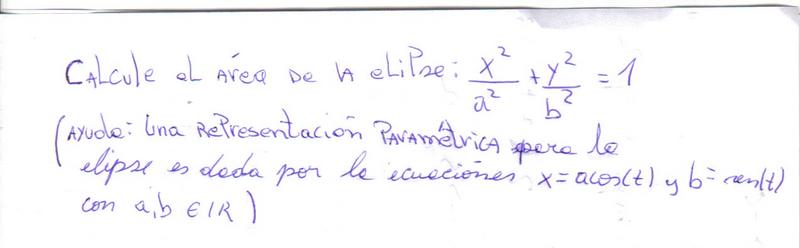 Calcule el área de la elipse: x²/a² + y²/b² = 1
(Ayuda: Una Representación Paramétrica para la
elipse es dada por la ecuaciones x = acos(t) y b = sen(t)
con a, b ∈ IR)